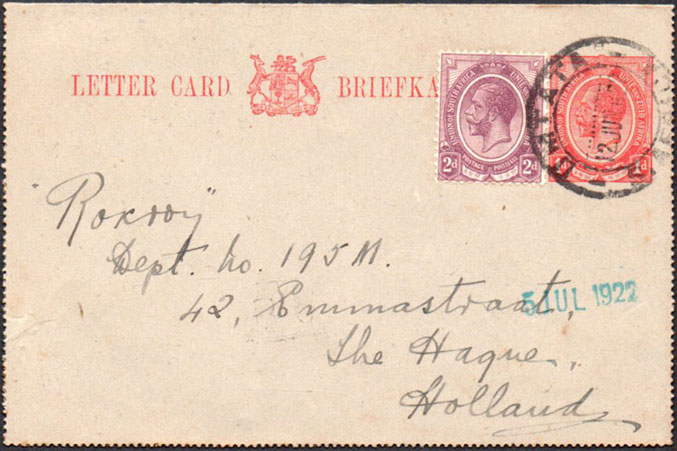 LETTER CARD BRIEFKA
UNION OF SOUTH AFRICA
POSTAGE POSTZEGEL
2d 2d
UMTATA
12 JU
"Roxroy"
Dept. No. 195 M.
42, Emmastraat,
5 JUL 1922
The Hague,
Holland